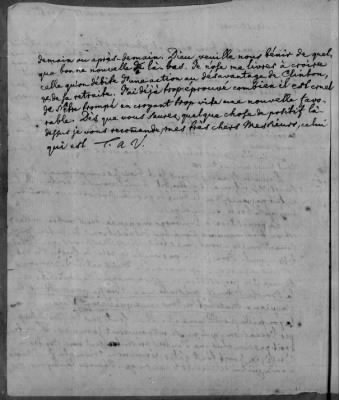 demain ou après-demain. Dieu veuille nous bénir de quel,
que bonne nouvelle de là-bas. Je n'ose me livrer à croire
celle qu'on débite d'une action au désavantage de Clinton,
& de sa retraite. J'ai déjà trop éprouvé combien il est cruel
de s'être trompé en croyant trop vite une nouvelle favo-
rable. Dès que vous saurez quelque chose de positif là
dessus je vous recommande, mes très chers Messieurs, celui
qui est T. a V.